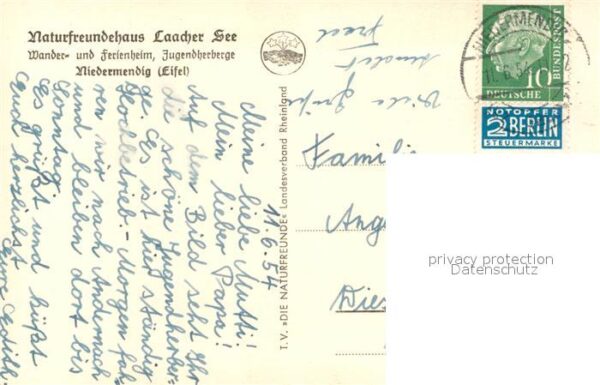 Naturfreundehaus Laacher See
Wander- und Ferienheim, Jugendherberge
Niedermendig (Eifel)
11.6.54
Meine liebe Mutti!
Mein lieber Papa!
Auf dem Bild seht Ihr
die schöne Jugendherber-
ge. Es ist hier ständig
Hochbetrieb. - Morgen fah-
ren wir nach Andernach
und bleiben dort bis
Sonntag.
Es grüßt und küßt
Euch herzlichst
Eure Edith
Viele Grüße
sendet
T.V. »DIE NATURFREUNDE« Landesverband Rheinland
NIEDERMENDIG
11.6.54
10
DEUTSCHE
BUNDESPOST
NOTOPFER
2 BERLIN
STEUERMARKE
Famili
Ange
Die
privacy protection
Datenschutz